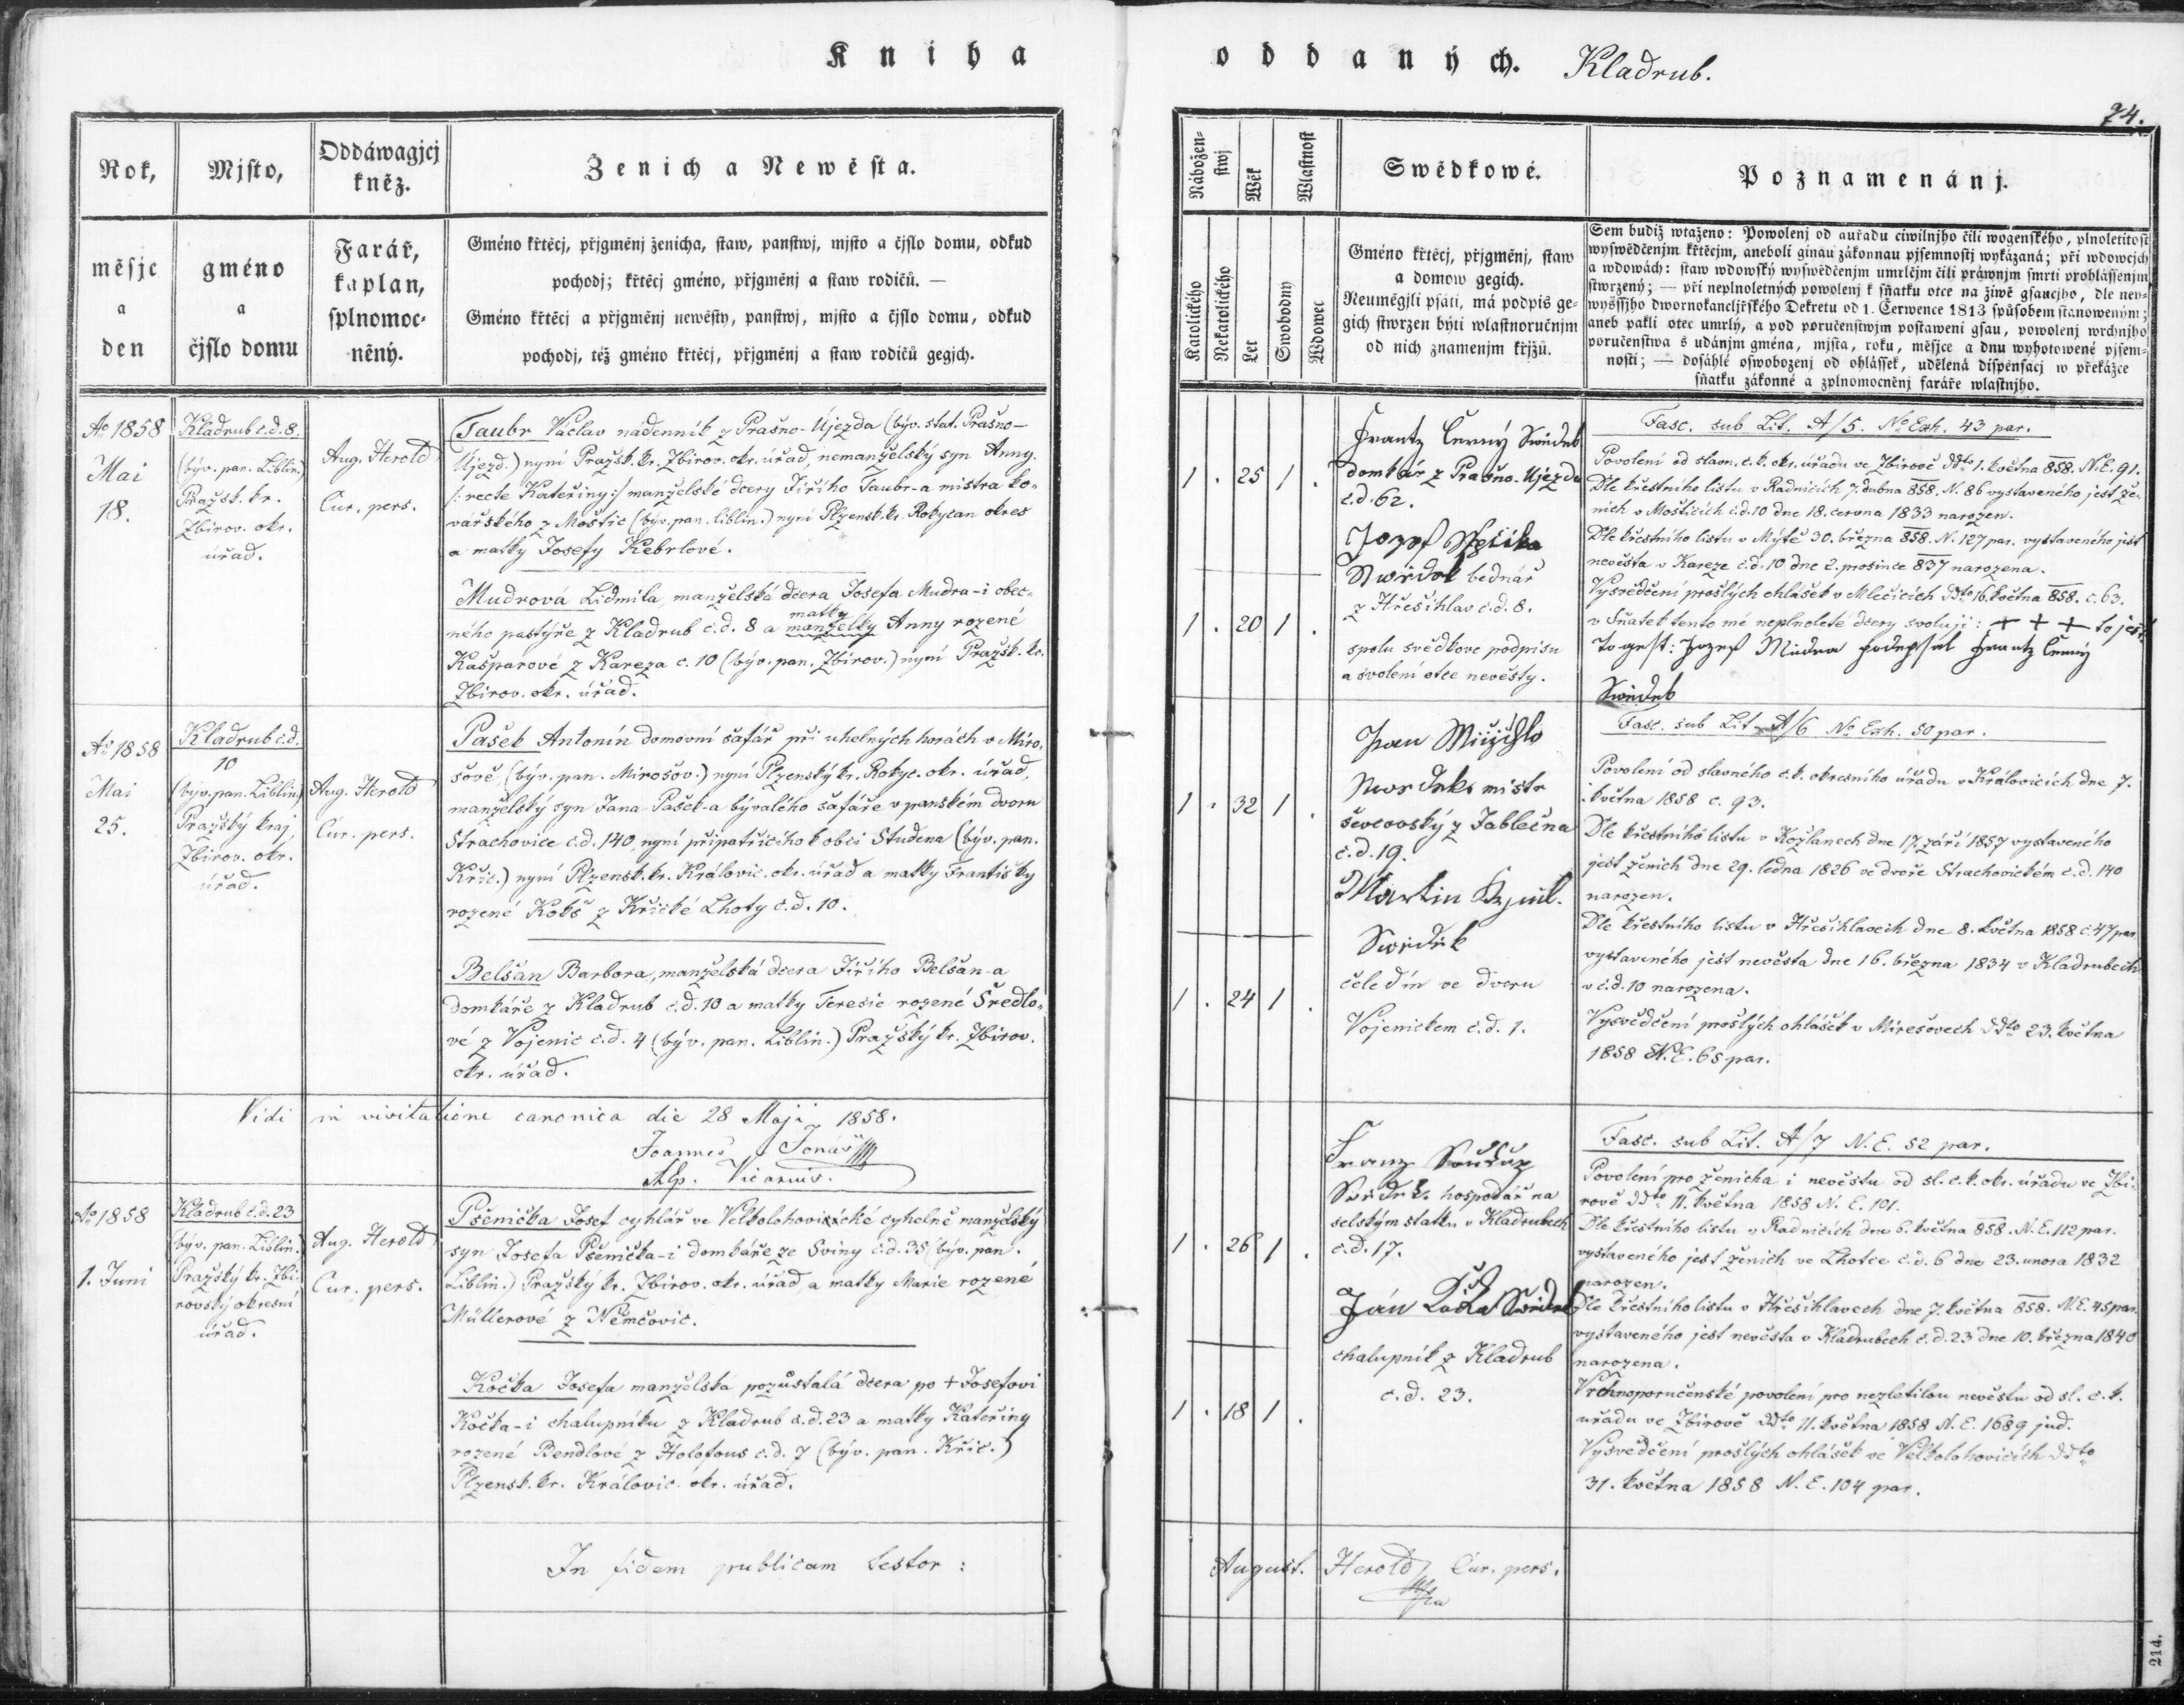 Kniha oddaných. Kladrub.
74.
Rok,
měsjc
a
den
Mjsto,
gméno
a
čjslo domu
Oddáwagjcj
kněz.
Farář,
kaplan,
splnomoc-
něný.
Ženich a Newěsta.
Gméno křtěcj, přjgměnj ženicha, staw, panstwj, mjsto a čjslo domu, odkud
pochodj; křtěcj gméno, přjgměnj a staw rodičů. —
Gméno křtěcj a přjgměnj newěsty, panstwj, mjsto a čjslo domu, odkud
pochodj, též gméno křtěcj, přjgměnj a staw rodičů gegjch.
Nábožen-
stwj
Katolického
Nekatolického
Wěk
Let
Wlastnost
Swobodný
Wdowec
Swědkowé.
Gméno křtěcj, přjgměnj, staw
a domow gegich.
Neumėgjli psáti, má podpis ge-
gich stwrzen býti wlastnoručnjm
od nich znamenjm křjžů.
Poznamenánj.
Sem budiž wtaženo: Powolenj od auřadu ciwilnjho čili wogenského, plnoletitost
wyswědčenjm křtěcjm, aneboli ginau zákonnau pjsemnostj wykázaná; při wdowcjch
a wdowách: staw wdowský wyswědčenjm umrlčjm čili práwnjm smrti prohlássenjm
stwrzený; — při neplnoletných powolenj k sňatku otce na žiwě gsaucjho, dle ney-
wyššjho dwornokancljřského Dekretu od 1. Čerwence 1813 spůsobem stanoweným;
aneb pakli otec umrlý, a pod poručenstwjm postaweni gsau, powolenj wrchnjho
poručenstwa s udánjm gména, mjsta, roku, měsjce a dnu wyhotowené pjsem-
nosti; — dosáhlé oswobozenj od ohlássek, udělená dispensacj w překážce
sňatku zákonné a zplnomocněnj faráře wlastnjho.
Ao 1858
Mai
18.
Kladrub č.d. 8.
(býv. pan. Liblin.)
Pražsk. kr.
Zbirov. okr.
úřad.
Aug. Herold
Cur. pers.
Taubr Václav nádenník z Prašno-Újezda (býv. stat. Prašno-
Újezd.) nyní Pražsk. kr. Zbirov. okr. úřad, nemanželský syn Anny
/: recte Kateřiny :/ manželské dcery Jiřího Taubr-a mistra ko-
vářského z Moštic (býv. pan. liblin.) nyní Plzensk. kr. Rokycan okres
a matky Josefy Kebrlové.
Mudrová Lidmila, manželská dcera Josefa Mudra-i obec-
matky
ného pastýře z Kladrub č.d. 8 a manželky Anny rozené
Kašparové z Kareza č. 10 (býv. pan. Zbirov.) nyní Pražsk. kr.
Zbirov. okr. úřad.
1 . 25 1 .
1 . 20 1 .
Frantz Černý Swědek
domkář z Prašno-Újezda
č.d. 62.
Jozef
Swědek bednář
z Hřešihlav č.d. 8.
spolu svědkove podpisu
a svolení otce nevěsty.
Fasc. sub Lit. A/5. No Exh. 43 par.
Povolení od slavn. c.k. okr. úřadu ve Zbirově ddto 1. května 858. N.E. 91.
Dle křestního listu v Radnicích 7. dubna 858. N. 86 vystaveného jest že-
nich v Mošticích č.d. 10 dne 18. června 1833 narozen.
Dle křestního listu v Mýtě 30. března 858. N. 127 par. vystaveného jest
nevěsta v Kareze č.d. 10 dne 2. prosince 837 narozena.
Vysvědčení prošlých ohlášek v Mlečicích ddto 16. května 858. č. 63.
v Sňatek tento mé neplnoleté dcery svoluji: + + + to jest
To gest: Jozef Mudra podepsal Frantz Černý
Swědek
Ao 1858
Mai
25.
Kladrub č.d.
10
(býv. pan. Liblin.)
Pražský kraj,
Zbirov. okr.
úřad.
Aug. Herold
Cur. pers.
Pašek Antonín domovní šafář při uhelných horách v Miro-
šově (býv. pan. Mirošov.) nyní Plzenský kr. Rokyc. okr. úřad,
manželský syn Jana Pašek-a bývalého šafáře v panském dvoru
Strachovice č.d. 140 nyní připatřícího k obci Studena (býv. pan.
Křic.) nyní Plzensk. kr. Královic. okr. úřad a matky Františky
rozené Kokš z Křické Lhoty č.d. 10.
Belšan Barbora, manželská dcera Jiřího Belšan-a
domkáře z Kladrub č.d. 10 a matky Teresie rozené Šredlo-
vé z Vojenic č.d. 4 (býv. pan. Liblin.) Pražský kr. Zbirov.
okr. úřad.
1 . 32 1 .
1 . 24 1 .
mistr
ševcovský z Jablečna
č.d. 19.
Martin
Swědek
čeledín ve dvoru
Vojenickem č.d. 1.
Fasc. sub Lit. A/6 No Exh. 50 par.
Povolení od slavného c.k. okresního úřadu v Královicích dne 7.
května 1858 č. 93.
Dle křestního listu v Kožlanech dne 17. září 1857 vystaveného
jest ženich dne 29. ledna 1826 ve dvoře Strachovickém č.d. 140
narozen.
Dle křestního listu v Hřešihlavech dne 8. května 1858 č. 47 par
vystaveného jest nevěsta dne 16. března 1834 v Kladrubech
v č.d. 10 narozena.
Vysvědčení prošlých ohlášek v Mirešovech ddto 23. května
1858 N.E. 65 par.
Vidi in visitatione canonica die 28 Maji 1858.
Joannes Jonáš
Vicarius.
Ao 1858
1. Juni
Kladrub č.d. 23
(býv. pan. Liblin.)
Pražský kr. Zbi-
rovský okresní
úřad.
Aug. Herold
Cur. pers.
Pšenička Josef cyhlář ve Velkolohovické cyhelně manželský
syn Josefa Pšenička-i domkáře ze Sviny č.d. 35 (býv. pan.
Liblin.) Pražský kr. Zbirov. okr. úřad, a matky Marie rozené
Müllerové z Němčovic.
Kočka Josefa manželská pozůstalá dcera po + Josefovi
Kočka-i chalupníku z Kladrub č.d. 23 a matky Kateřiny
rozené Bendlové z Holofous č.d. 7 (býv. pan. Křic.)
Plzensk. kr. Královic. okr. úřad.
1 . 26 1 .
1 . 18 1 .
Franz Soukup
Swědek hospodář na
selským statku v Kladrubech
č.d. 17.
Ján Swědek
chalupník z Kladrub
č.d. 23.
Fasc. sub Lit. A/7 N.E. 52 par.
Povolení pro ženicha i nevěstu od sl. c.k. okr. úřadu ve Zbi-
rově ddto 11. května 1858 N.E. 101.
Dle křestního listu v Radnicích dne 6. května 858. N.E. 112 par.
vystaveného jest ženich ve Lhotce č.d. 6 dne 23. unora 1832
narozen.
Dle křestního listu v Hřešihlavech dne 7. května 858. N.E. 45 par.
vystaveného jest nevěsta v Kladrubech č.d. 23 dne 10. března 1840
narozena.
Vrchnoporučenské povolení pro nezletilou nevěstu od sl. c.k.
úřadu ve Zbirově ddto 11. května 1858 N.E. 1689 jud.
Vysvědčení prošlých ohlášek ve Velkolohovicích ddto
31. května 1858 N.E. 104 par.
In fidem publicam testor: August. Herold Cur. pers.
214.